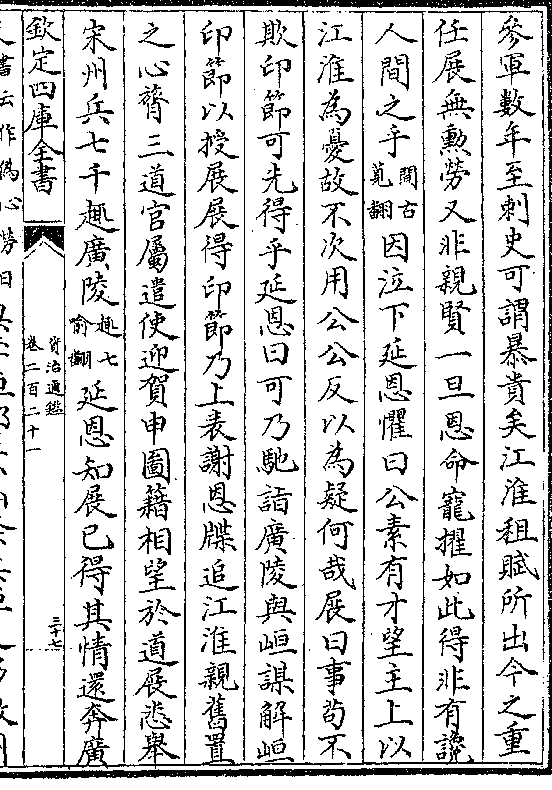 參軍數年至刺史可謂暴貴矣江淮租賦所出今之重
任展無勲勞又非親賢一旦恩命寵擢如此得非有讒
人間之乎間古莧翻因泣下延恩懼曰公素有才望主上以
江淮為憂故不次用公公反以為疑何哉展曰事茍不
欺印節可先得乎延恩曰可乃馳詣廣陵與峘謀解峘
印節以授展展得印節乃上表謝恩牒追江淮親舊置
之心膂三道官屬遣使迎賀申圖籍相望於道展悉舉
宋州兵七千趣廣陵趣七喻翻延恩知展已得其情還奔廣
欽定四庫全書
資治通鑑
卷二百二十一
三十七
書云作偽心勞日